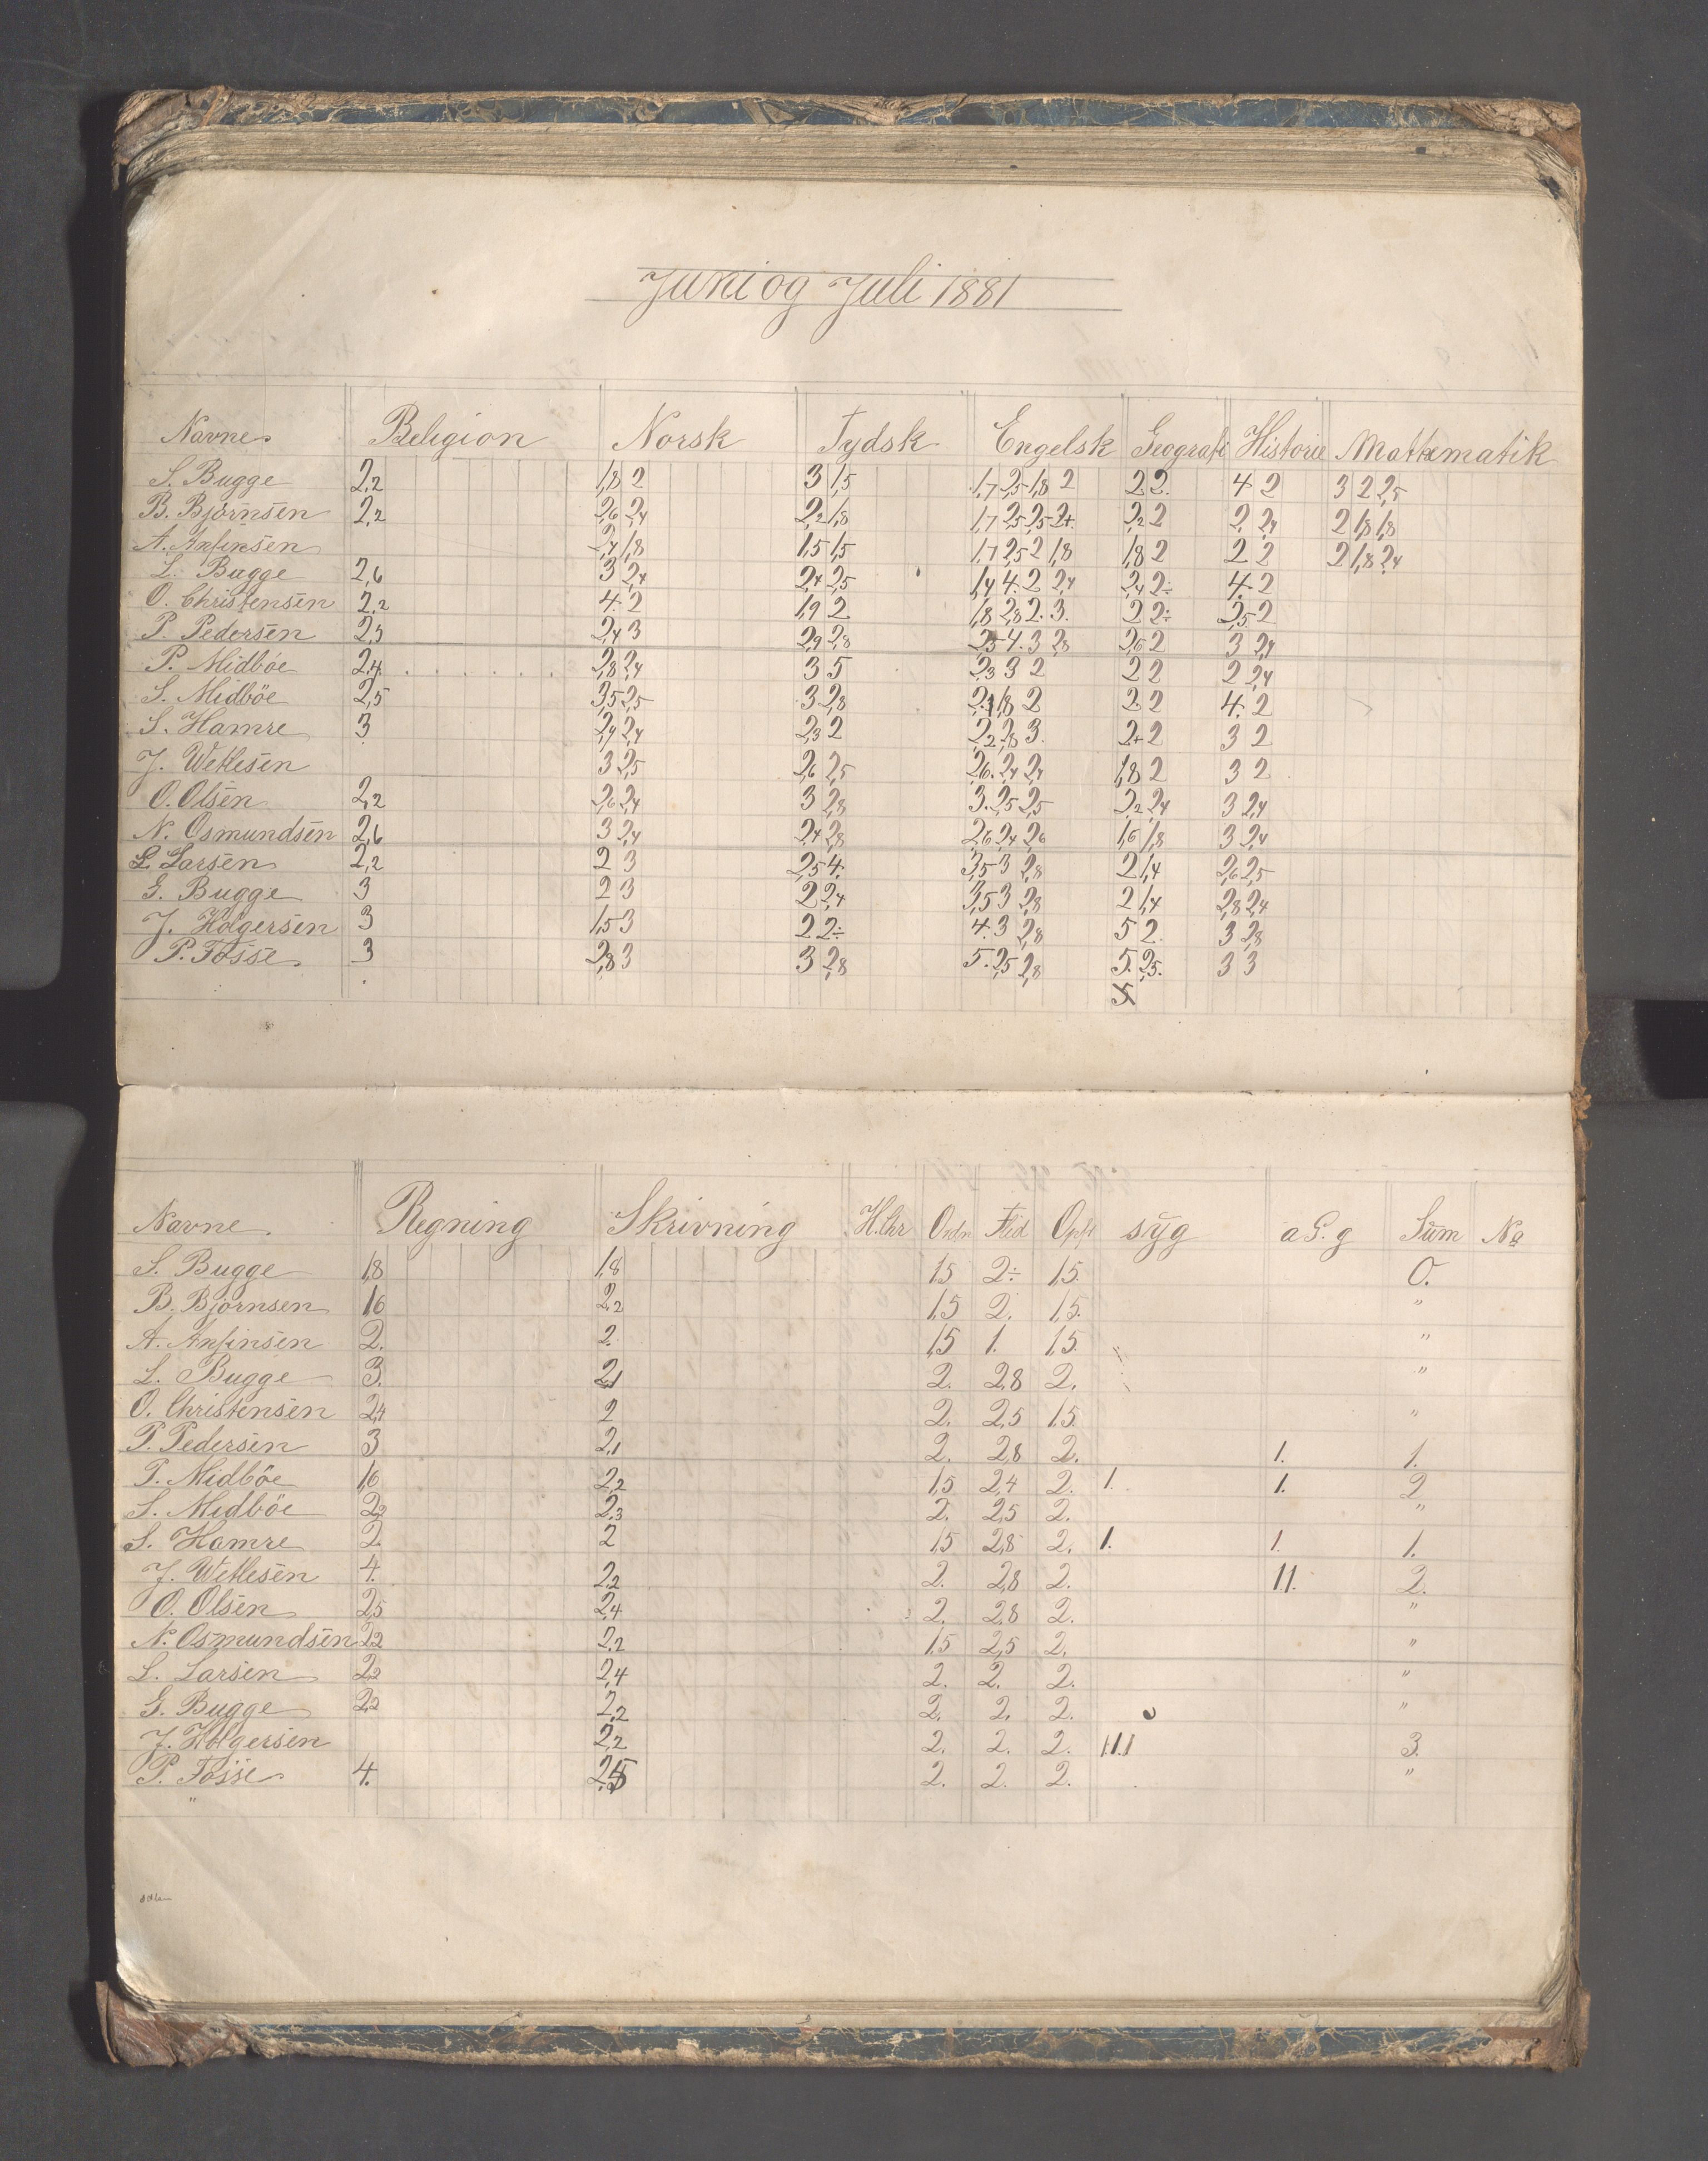 Juni og Juli 1881
Navne Religion Norsk Tydsk Engelsk Geografi Historie Mathematik
S. Bugge 2,2 1,8 2 3 1,5 1,7 2,5 1,8 2 2 2. 4 2 3 2 2,5
B. Bjørnsen 2,2 2,6 2,4 2,2 1,8 1,7 2,5 2,5 2+ 2,2 2 2 2,4 2 1,8 1,8
A. Anfinsen 2,4 1,8 1,5 1,5 1,7 2,5 2 1,8 1,8 2 2 2 2 1,8 2,4
L. Bugge 2,6 3 2,4 2,4 2,5 1,4 4. 2 2,4 2,4 2÷ 4. 2
O. Christensen 2,2 4. 2 1,9 2 1,8 2,8 2. 3. 2 2÷ 2,5 2
P. Pedersen 2,5 2,4 3 2,9 2,8 2,5 4. 3 2,8 2,6 2 3 2,4
P. Midböe 2,4. 2,8 2,4 3 5 2,3 3 2 2 2 2 2,4
S. Midböe 2,5 3,5 2,5 3 2,8 2,1 1,8 2 2 2 4. 2
S. Hamre 3 2,9 2,4 2,3 2 2,2 2,8 3. 2+ 2 3 2
J. Wetlesen 3 2,5 2,6 2,5 2,6. 2,4 2,4 1,8 2 3 2
O. Olsen 2,2 2,6 2,4 3 2,8 3. 2,5 2,5 2,2 2,4 3 2,4
N. Osmundsen 2,6 3 2,4 2,4 2,8 2,6 2,4 2,6 1,6 1,8 3 2,4
L. Larsen 2,2 2 3 2,5 4. 3,5 3 2,8 2 1,4 2,6 2,5
G. Bugge 3 2 3 2 2,4 3,5 3 2,8 2 1,4 2,8 2,4
J. Holgersen 3 1,5 3 2 2÷ 4. 3 2,8 5 2. 3 2,8
P. Fosse 3 2,8 3 3 2,8 5. 2,5 2,8 5. 2,5. 3 3
5
Navne Regning Skrivning Ordn Flid Opf syg a G. g Sum No
S. Bugge 1,8 1,8 1,5 2÷ 1,5. 0.
B. Bjørnsen 1,6 2,2 1,5 2. 1,5. "
A. Anfinsen 2. 2. 1,5 1. 1,5. "
L. Bugge 3. 2,1 2. 2,8 2. "
O. Christensen 2,4 2 2. 2,5 1,5 "
P. Pedersen 3 2,1 2. 2,8 2. 1. 1.
P. Midböe 1,6 2,2 1,5 2,4 2. 1. 1. 2
S. Midböe 2,2 2,3 2. 2,5 2. "
S. Hamre 2 2 1,5 2,8 2. 1. 1. 1.
J. Wetlesen 4. 2,2 2. 2,8 2. 1.1. 2.
O. Olsen 2,5 2,4 2. 2,8 2. "
N. Osmundsen 2,2 2,2 1,5 2,5 2. "
L. Larsen 2,2 2,4 2. 2. 2. "
G. Bugge 2,2 2,2 2. 2. 2. "
J. Holgersen 2,2 2. 2. 2. 1.1.1 3.
P. Fosse 4. 2,5 2. 2. 2. "
"